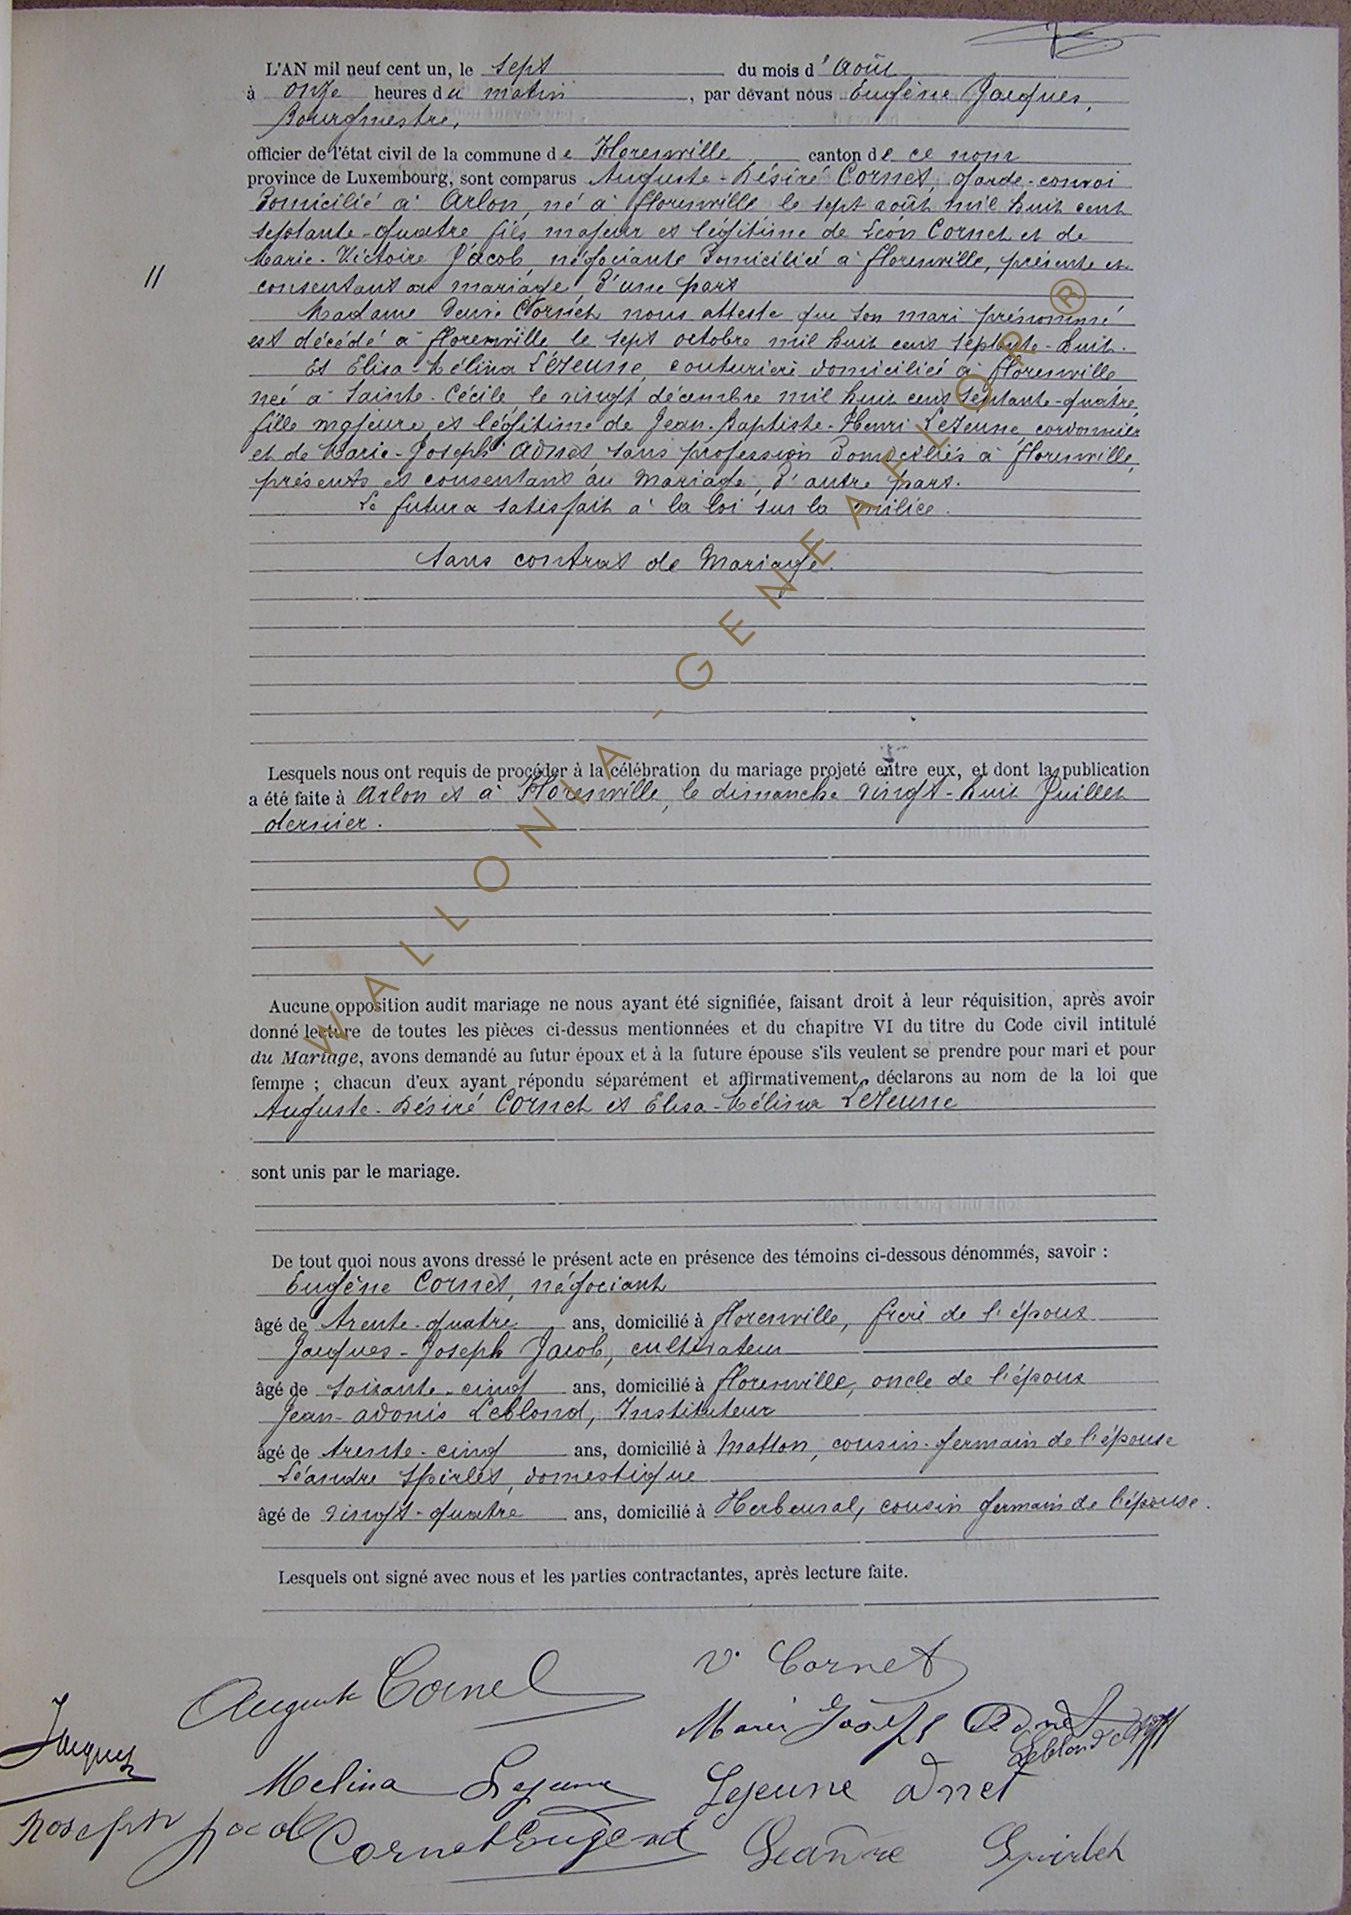 L'AN mil neuf cent un, le sept du mois d'Août
à onze heures du matin, par devant nous Eugène Jacques,
Bourgmestre,
officier de l'état civil de la commune de Florenville canton de ce nom
province de Luxembourg, sont comparus Auguste-Désiré Cornet, garde-convoi
Domicilié à Arlon, né à Florenville le sept août mil huit cent
septante-quatre fils majeur et légitime de Léon Cornet et de
Marie-Victoire Jacob, négociante Domiciliée à Florenville, présente et
consentant au mariage, D'une part
Madame Veuve Cornet nous atteste que son mari prénommé
est décédé à Florenville le sept octobre mil huit cent septante-huit.
Et Elisa-Mélina Lejeune, couturière domiciliée à Florenville
née à Sainte-Cécile, le vingt décembre mil huit cent septante-quatre,
fille majeure et légitime de Jean-Baptiste-Henri Lejeune, cordonnier
et de Marie-Joseph Adnet sans profession Domiciliés à Florenville,
présents et consentant au Mariage, D'autre part.
Le futur a satisfait à la loi sur la milice.
Sans contrat de Mariage.
11
Lesquels nous ont requis de procéder à la célébration du mariage projeté entre eux, et dont la publication
a été faite à Arlon et à Florenville, le dimanche vingt-huit Juillet
dernier.
Aucune opposition audit mariage ne nous ayant été signifiée, faisant droit à leur réquisition, après avoir
donné lecture de toutes les pièces ci-dessus mentionnées et du chapitre VI du titre du Code civil intitulé
du Mariage, avons demandé au futur époux et à la future épouse s'ils veulent se prendre pour mari et pour
femme ; chacun d'eux ayant répondu séparément et affirmativement, déclarons au nom de la loi que
Auguste-Désiré Cornet et Elisa-Mélina Lejeune
sont unis par le mariage.
De tout quoi nous avons dressé le présent acte en présence des témoins ci-dessous dénommés, savoir :
Eugène Cornet, négociant
âgé de trente-quatre ans, domicilié à Florenville, frère de l'époux
Jacques-Joseph Jacob, cultivateur
âgé de soixante-cinq ans, domicilié à Florenville, oncle de l'époux
Jean-Adonis Leblond, Instituteur
âgé de trente-cinq ans, domicilié à Matton, cousin-germain de l'épouse
Léandre Spirlet, domestique
âgé de vingt-quatre ans, domicilié à Herbeuval, cousin germain de l'épouse.
Lesquels ont signé avec nous et les parties contractantes, après lecture faite.
Auguste Cornet
V. Cornet
Jacques
Marie Joseph Adnet
Leblond
Melina Lejeune
Lejeune Adnet
Joseph Jacob
Cornet Eugène
Léandre Spirlet
WALLONIA-GENEAFLOR®